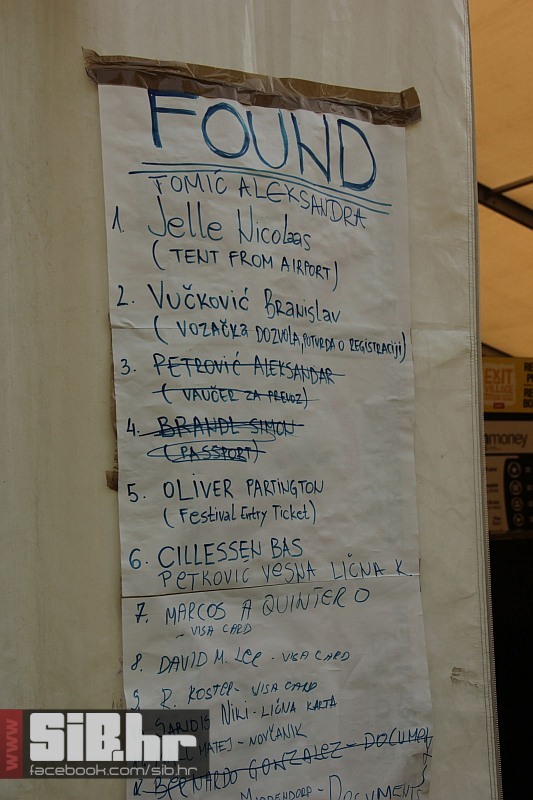 FOUND
TOMIĆ ALEKSANDRA
1. Jelle Nicolaas
(TENT FROM AIRPORT)
2. VUČKOVIĆ Branislav
(VOZAČKA DOZVOLA, POTVRDA O REGISTRACIJI)
3. PETROVIĆ ALEKSANDAR
(VAUČER ZA PREVOZ)
4. BRANDL SIMON
(PASSPORT)
5. OLIVER PARTINGTON
(Festival Entry Ticket)
6. CILLESSEN BAS
PETKOVIĆ VESNA LIČNA K.
7. MARCOS A QUINTERO
- VISA CARD
8. DAVID M. LEE - VISA CARD
9. R. KOSTER - VISA CARD
NIKI - LIČNA KARTA
MATEJ - NOVČANIK
BERNARDO GONZALEZ - DOCUMENT
MIDDENDORP - DOCUMENTS
EXIT
money
www
SiB.hr
facebook.com/sib.hr